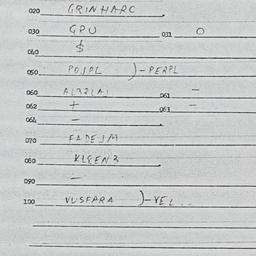 020 GRINHARC
030 GPU 031 O
040 $
050 POJPL )-PERPL
060 061 —
062 + 063 —
064 —
070
080 KLEEN3
090 —
100 VUSFARA )-VEL